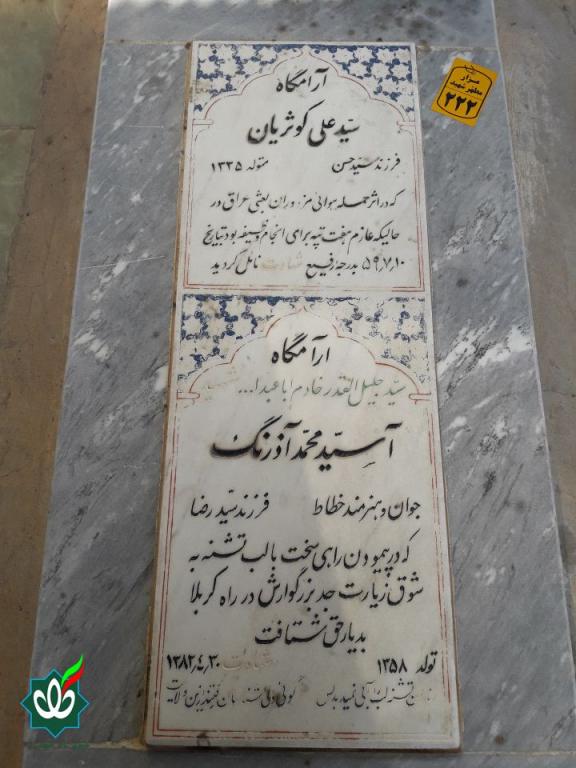 مزار
مطهر شهید
۲۲۲
آرامگاه
سیّد علی کوثریان
فرزند سیّد حسن متولد ۱۳۳۵
که در اثر حمله هوائی مزدوران بعثی عراق در
حالیکه عازم هفت تپه برای انجام وظیفه بود بتاریخ
۵۹٫۷٫۱۰ بدرجه رفیع شهادت نائل گردید
آرامگاه
سیّد جلیل القدر خادم اباعبدا...
آسیّد محمّد آذرنگ
جوان و هنرمند خطاط فرزند سیّد رضا
که در پیمودن راهی سخت با لب تشنه به
شوق زیارت جد بزرگوارش در راه کربلا
بدیار حق شتافت
تولد ۱۳۵۸ شهادت ۱۳۸۲٫۴٫۳۰
تشنه لب آبی نمیدهد کس گوئی ولی شناسان رفتند ازین ولایت